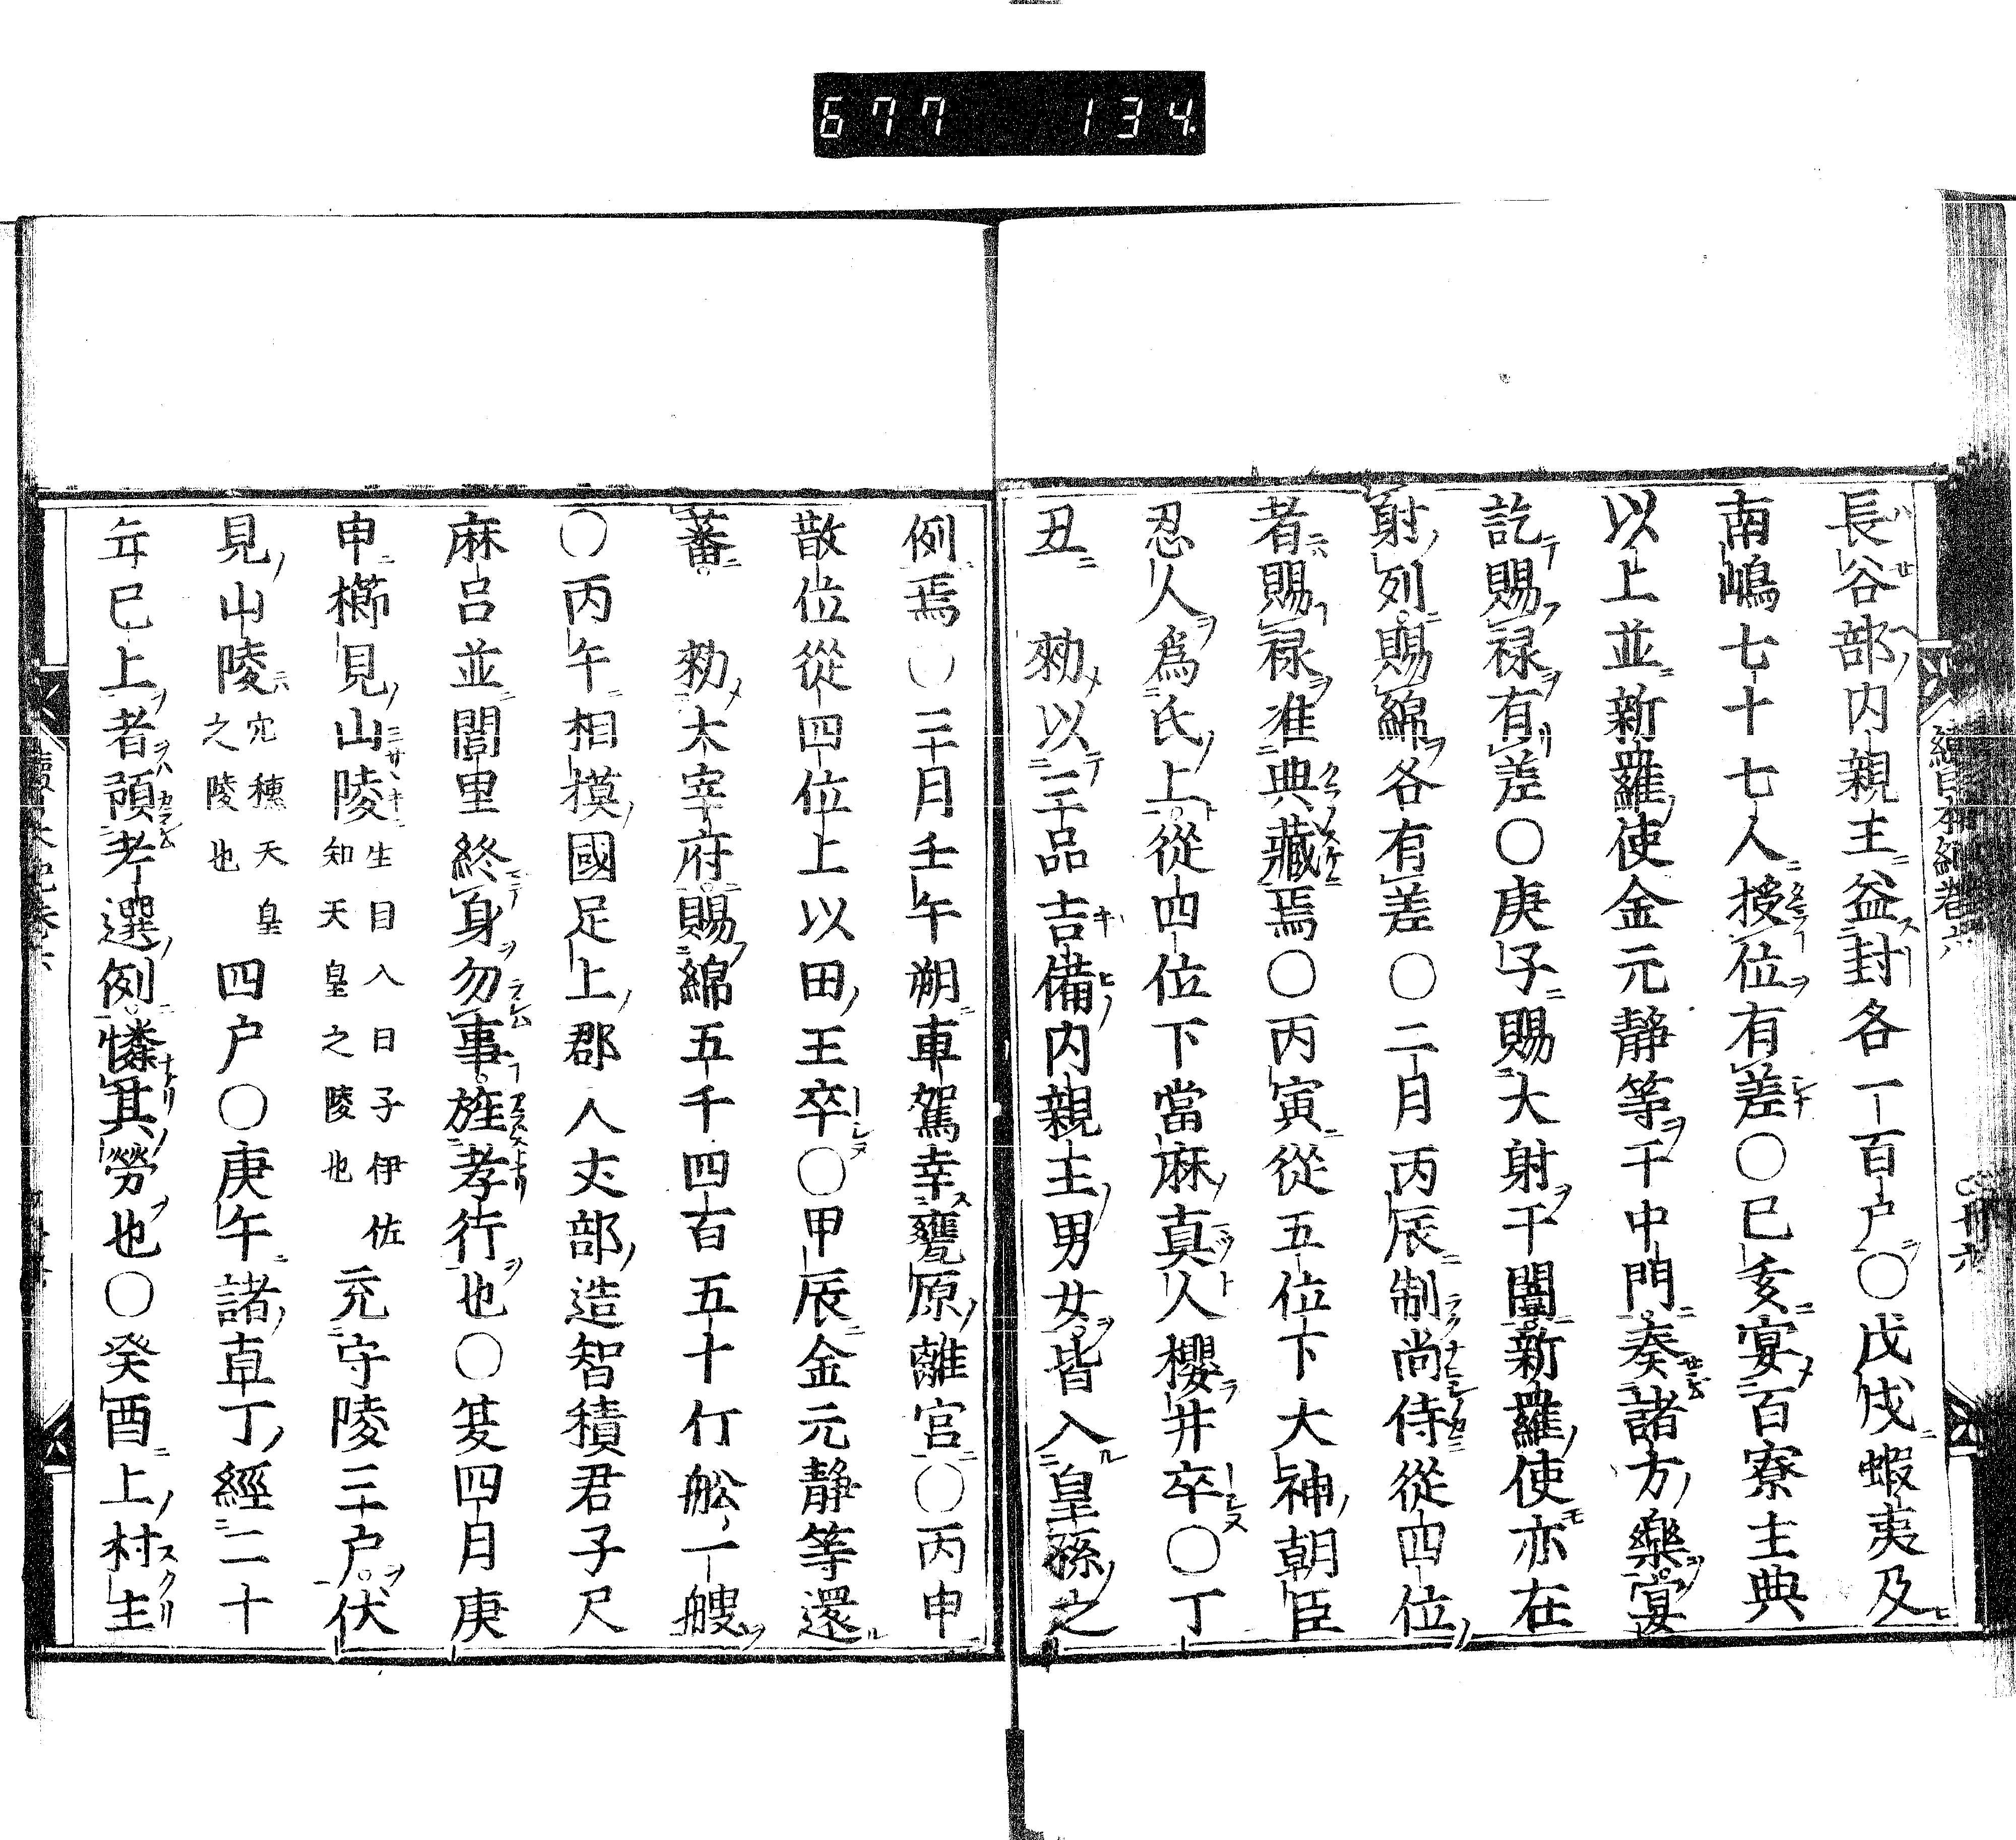 677 134
續日本紀卷六
長谷部内親王益封各一百戸〇戊戌蝦夷及
南嶋七十七人授位有差〇已亥宴百寮主典
以上並新羅使金元静等于中門奏諸方樂宴
訖賜禄有差〇庚子賜大射于闈新羅使亦在
射列賜綿各有差〇二月丙辰制尚侍從四位
者賜禄准典藏焉〇丙寅從五位下大神朝臣
忍人爲氏上從四位下當麻真人櫻井卒〇丁
丑勑以三品吉備内親王男女皆入皇孫之
例焉〇三月壬午朔車駕幸甕原離宮〇丙申
散位從四位上以田王卒〇甲辰金元静等還
蕃勑太宰府賜綿五千四百五十斤舩一艘
〇丙午相摸國足上郡人丈部造智積君子尺
麻呂並閭里終身勿事旌孝行也〇夏四月庚
申櫛見山陵生目入日子伊佐知天皇之陵也充守陵三戸伏
見山陵穴穗天皇之陵也四戸〇庚午諸直丁經二十
年已上者預考選例憐其勞也〇癸酉上村主